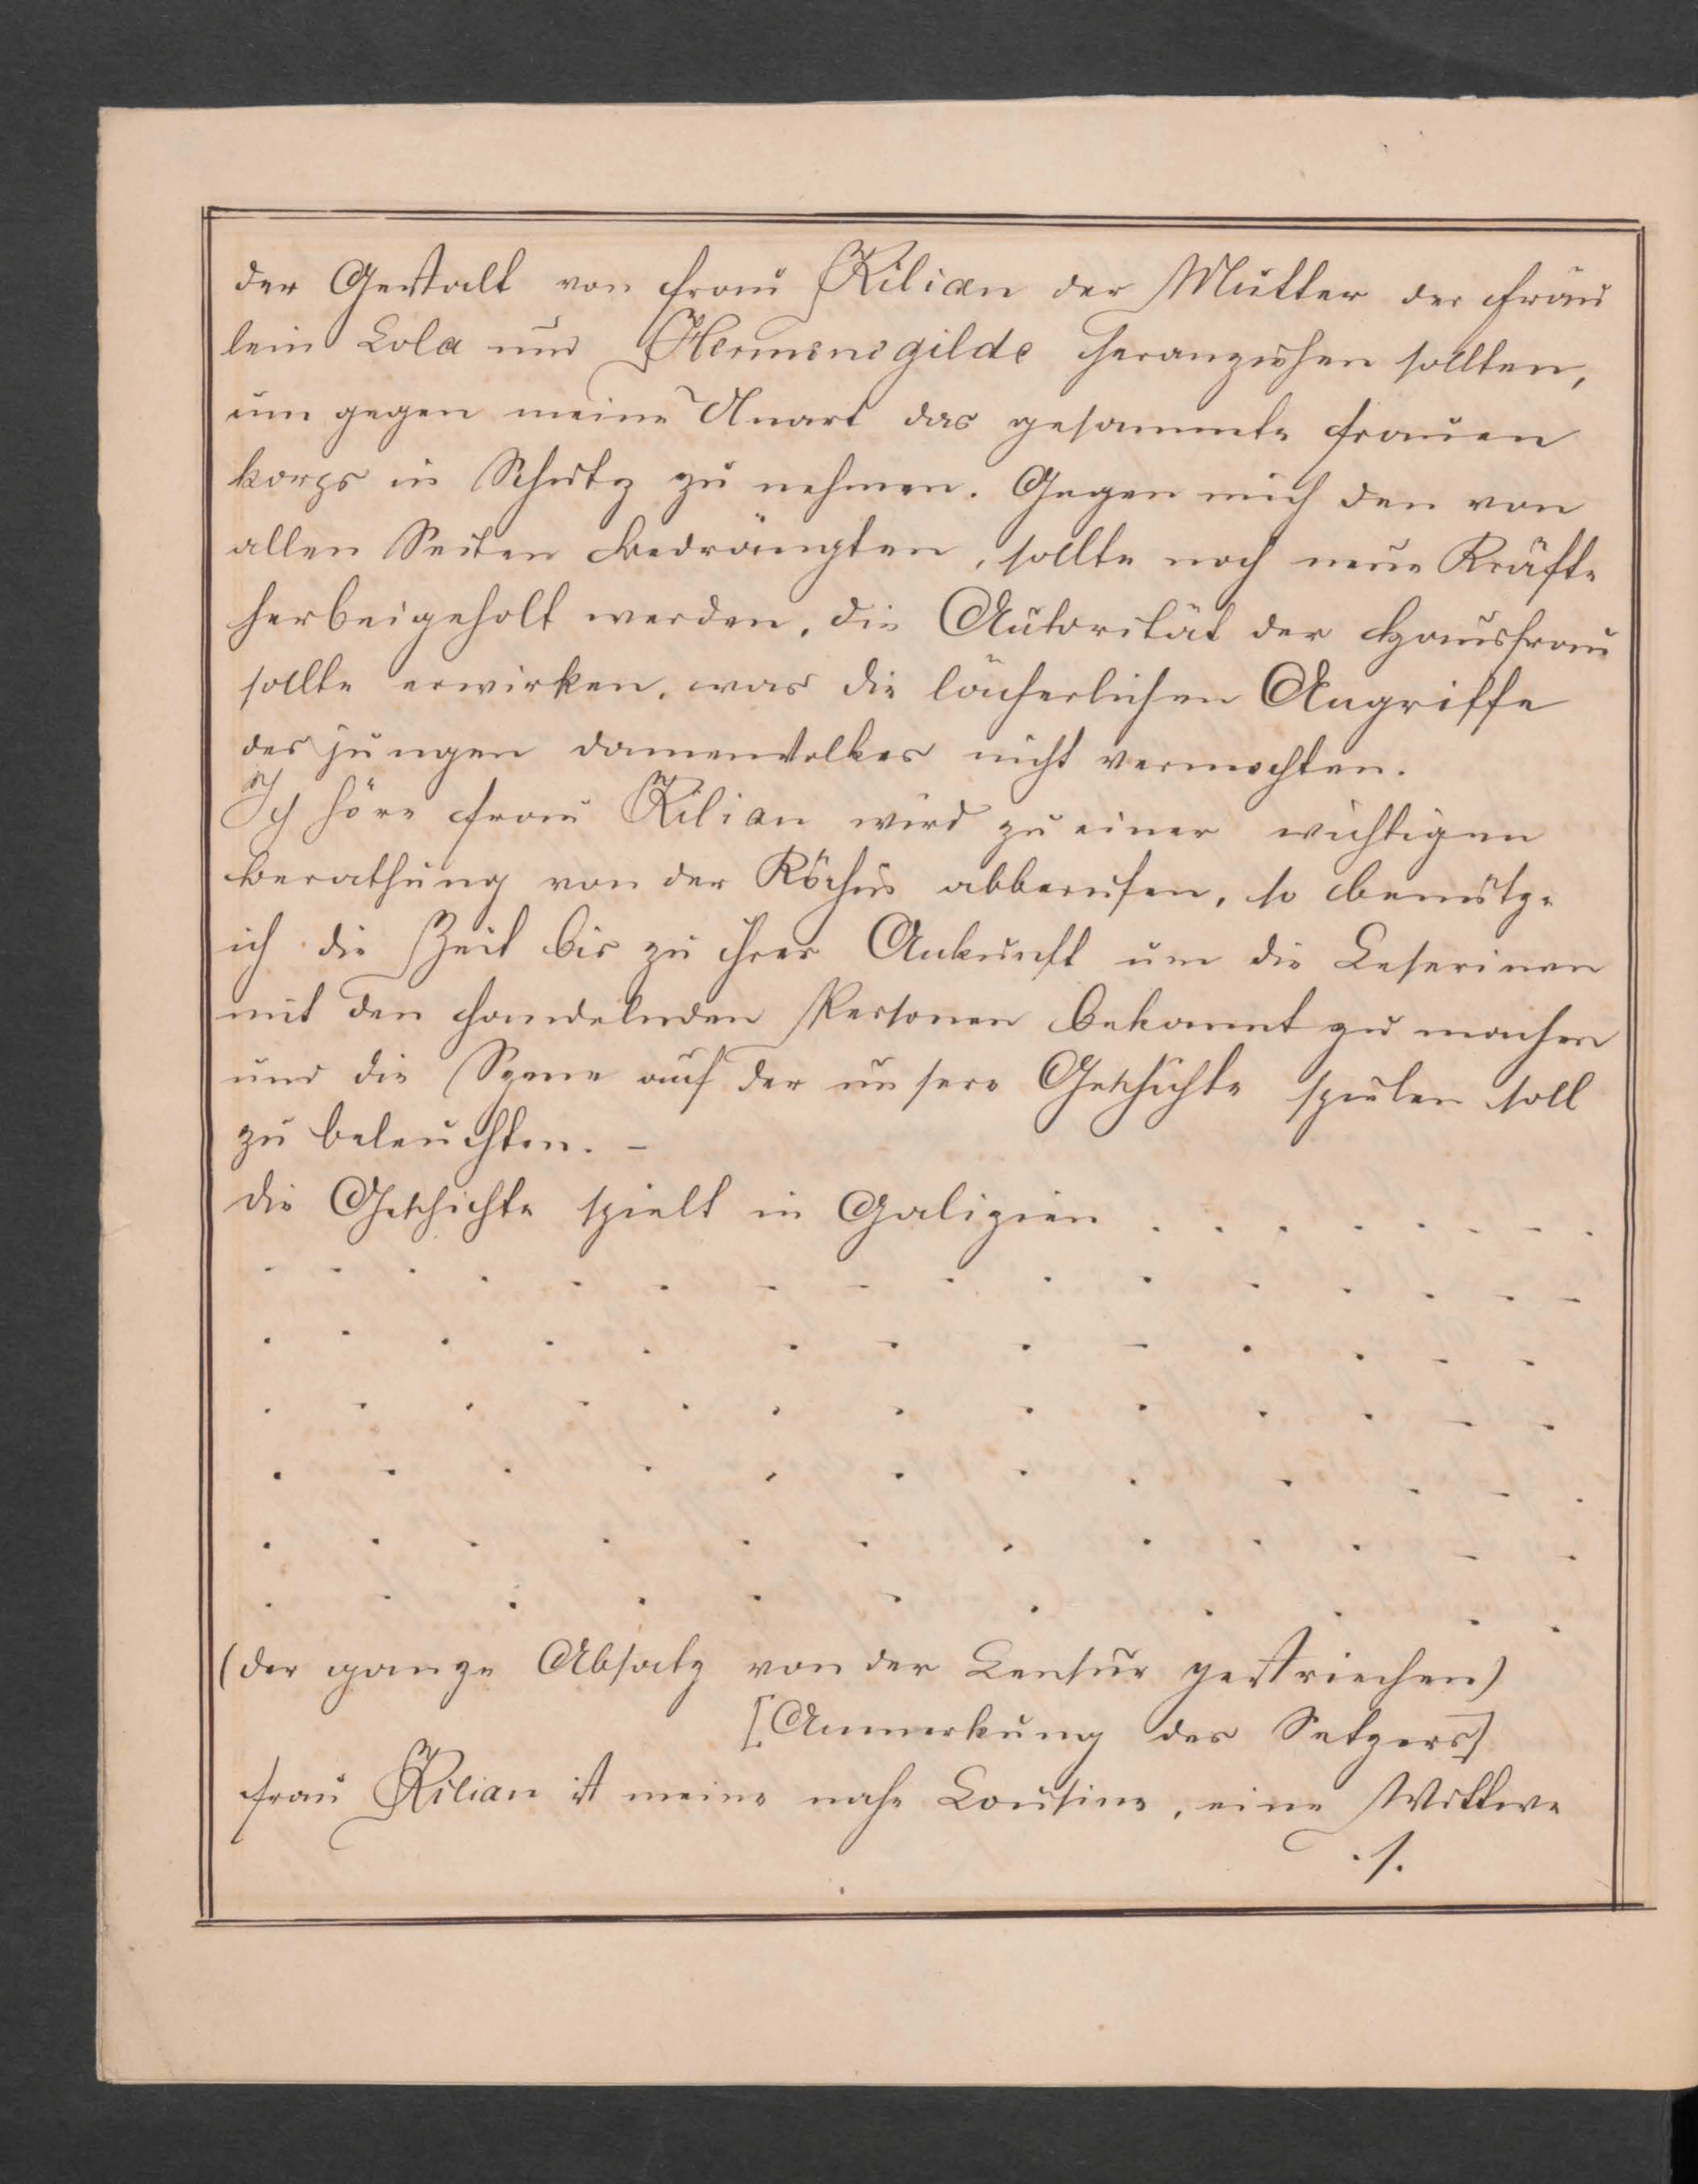 der Gestalt von Frau Kilian der Mutter der Fräu
lein Lola und Hermenegilde heranziehen sollten,
um gegen meine Unart das gesammte Frauen
korps in Schutz zu nehmen. Gegen mich den von
allen Seiten Bedrängten, sollte noch neue Kräfte
herbeigeholt werden, die Autorität der Hausfrau
sollte erwirken, was die lächerlichen Angriffe
des jungen Damenvolkes nicht vermochten.
Ich höre Frau Kilian wird zu einer wichtigen
Berathung von der Köchin abberufen, so benütze
ich die Zeit bis zu ihrer Ankunft um die Leserinen
mit den handelnden Personen bekannt zu machen
und die Szene auf der unsere Geschichte spielen soll
zu beleuchten. –
Die Geschichte spielt in Galizien . . . . . . . .
. . . . . . . . . . . . . . . .
. . . . . . . . . . . . .
. . . . . . . . . . . . .
. . . . . . . . . . . .
. . . . . . . . . . . .
. . . . . . . . . . .
(Der ganze Absatz von der Censur gestriechen)
[Anmerkung des Setzers]
Frau Kilian ist meine nahe Cousine, eine Wittwe
./.